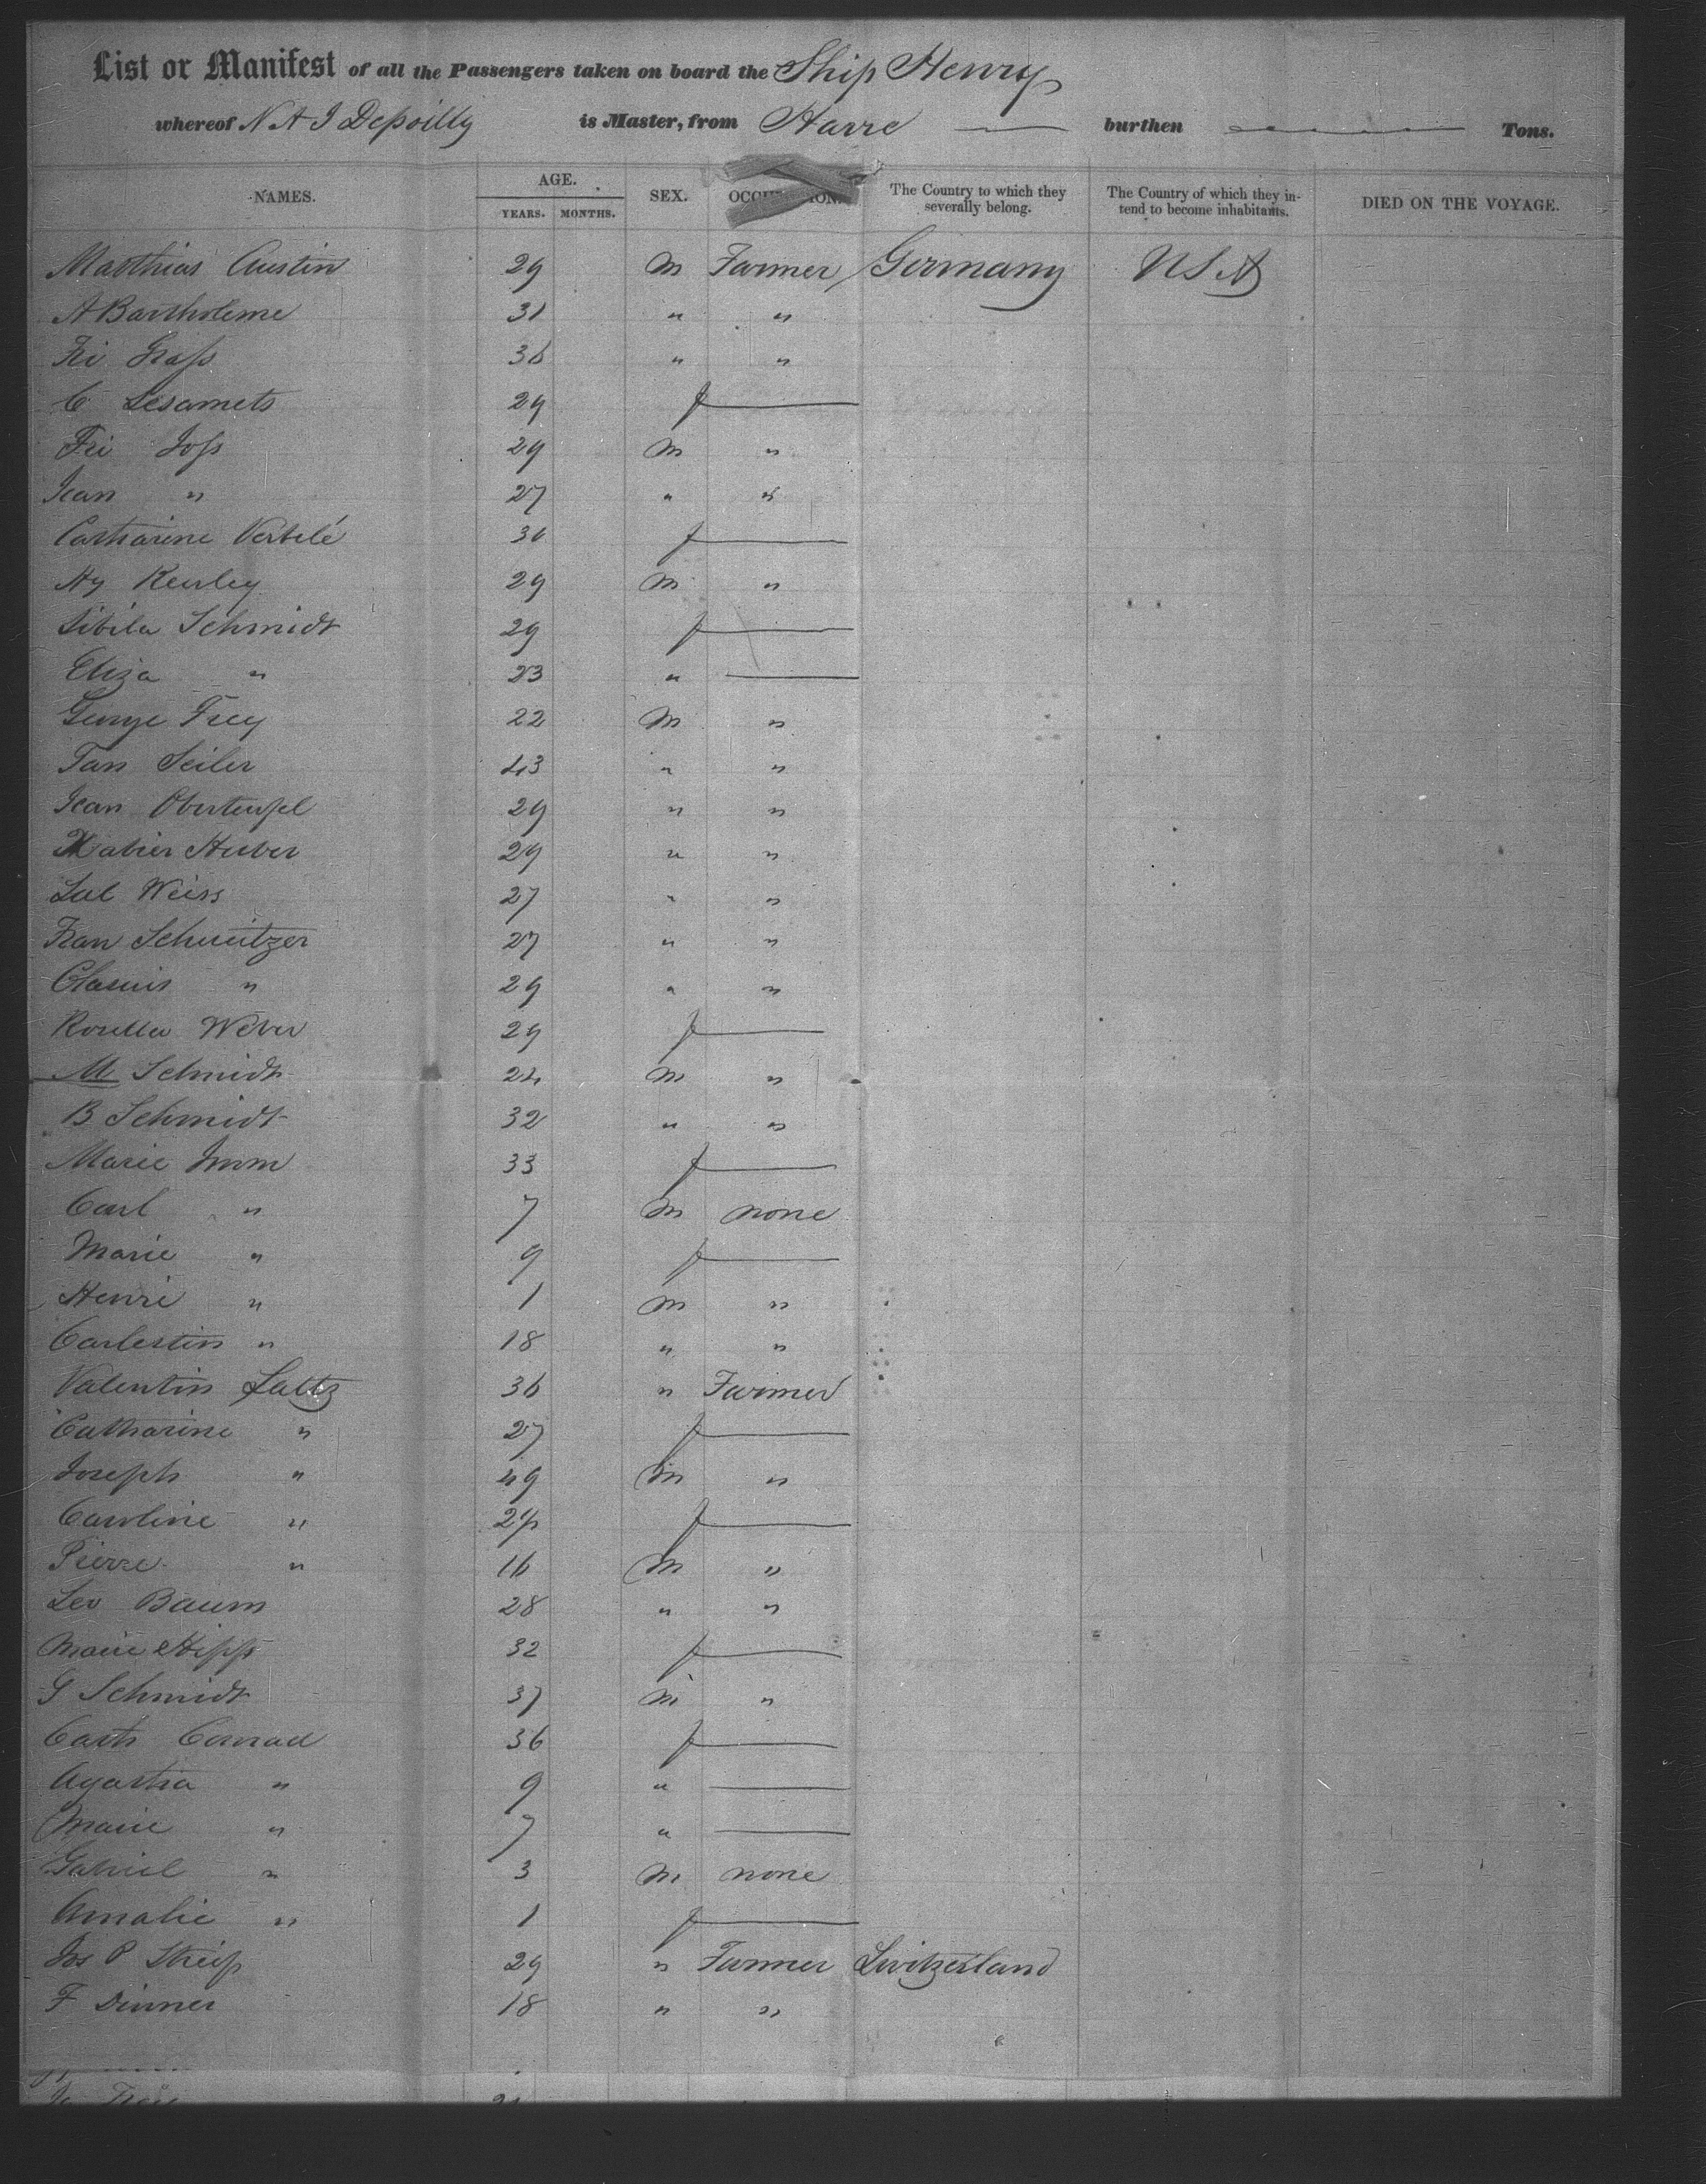 List or Manifest of all the Passengers taken on board the Ship Henry
whereof N A J Depoilly is Master, from Havre — burthen — Tons.
NAMES. AGE. YEARS. MONTHS. SEX. The Country to which they severally belong. The Country of which they intend to become inhabitants. DIED ON THE VOYAGE.
Matthias Austin 29 M Farmer Germany USA
A Bartholeme 31 " "
Fri Grass 36 " "
C Lesamets 29 f —
Fri Joss 29 M "
Jean " 27 " "
Catharine Verbelé 36 f —
Hy Keuley 29 M "
Sibila Schmidt 29 f —
Eliza " 23 " —
George Frey 22 M "
Jan Seiler 43 " "
Jean Oberteufel 29 " "
Xabier Huber 29 " "
Sal Weiss 27 " "
Fran Schwitzer 27 " "
" 29 " "
Rosella Weber 29 f —
M Schmidt 24 M "
B Schmidt 32 " "
Marie Imm 33 f —
Carl " 7 M none
Marie " 9 f —
Henri " 1 M "
Carlestin " 18 " "
Valentin Saltz 36 " Farmer
Catharine " 27 f —
Joseph " 49 M "
Caroline " f —
Pierre " 16 M "
Leo Baum 28 " "
Marie Hipp 32 f —
G Schmidt 37 M "
Cath Conrad 36 f —
Agatha " 9 " —
Marie " 7 " —
Gabriel " 3 M none
Amalie " 1 f —
Jos P Streif 29 " Farmer Switzerland
F Dinner 18 " "